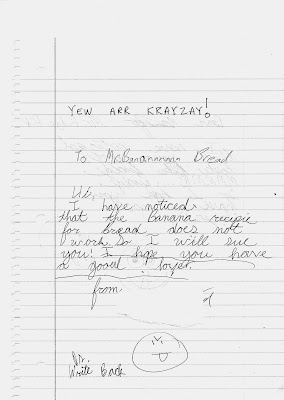 YEW ARR KRAYZAY!
To Mr.Banannnnnn Bread
Hi,
I have noticed
that the banana recipie
for bread does not
work so I will sue
you! I hope you have
a good loyer.
from
Dr.
Write Back